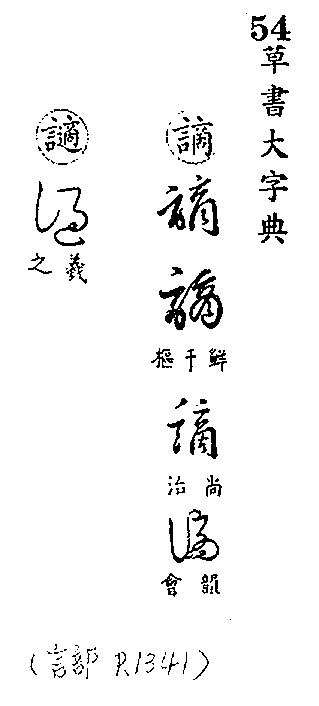 54
草書大字典
謫
謫
謫
鮮于樞
謫
尚治
謫
韻會
讁
讁
羲之
(言部 P.1341)